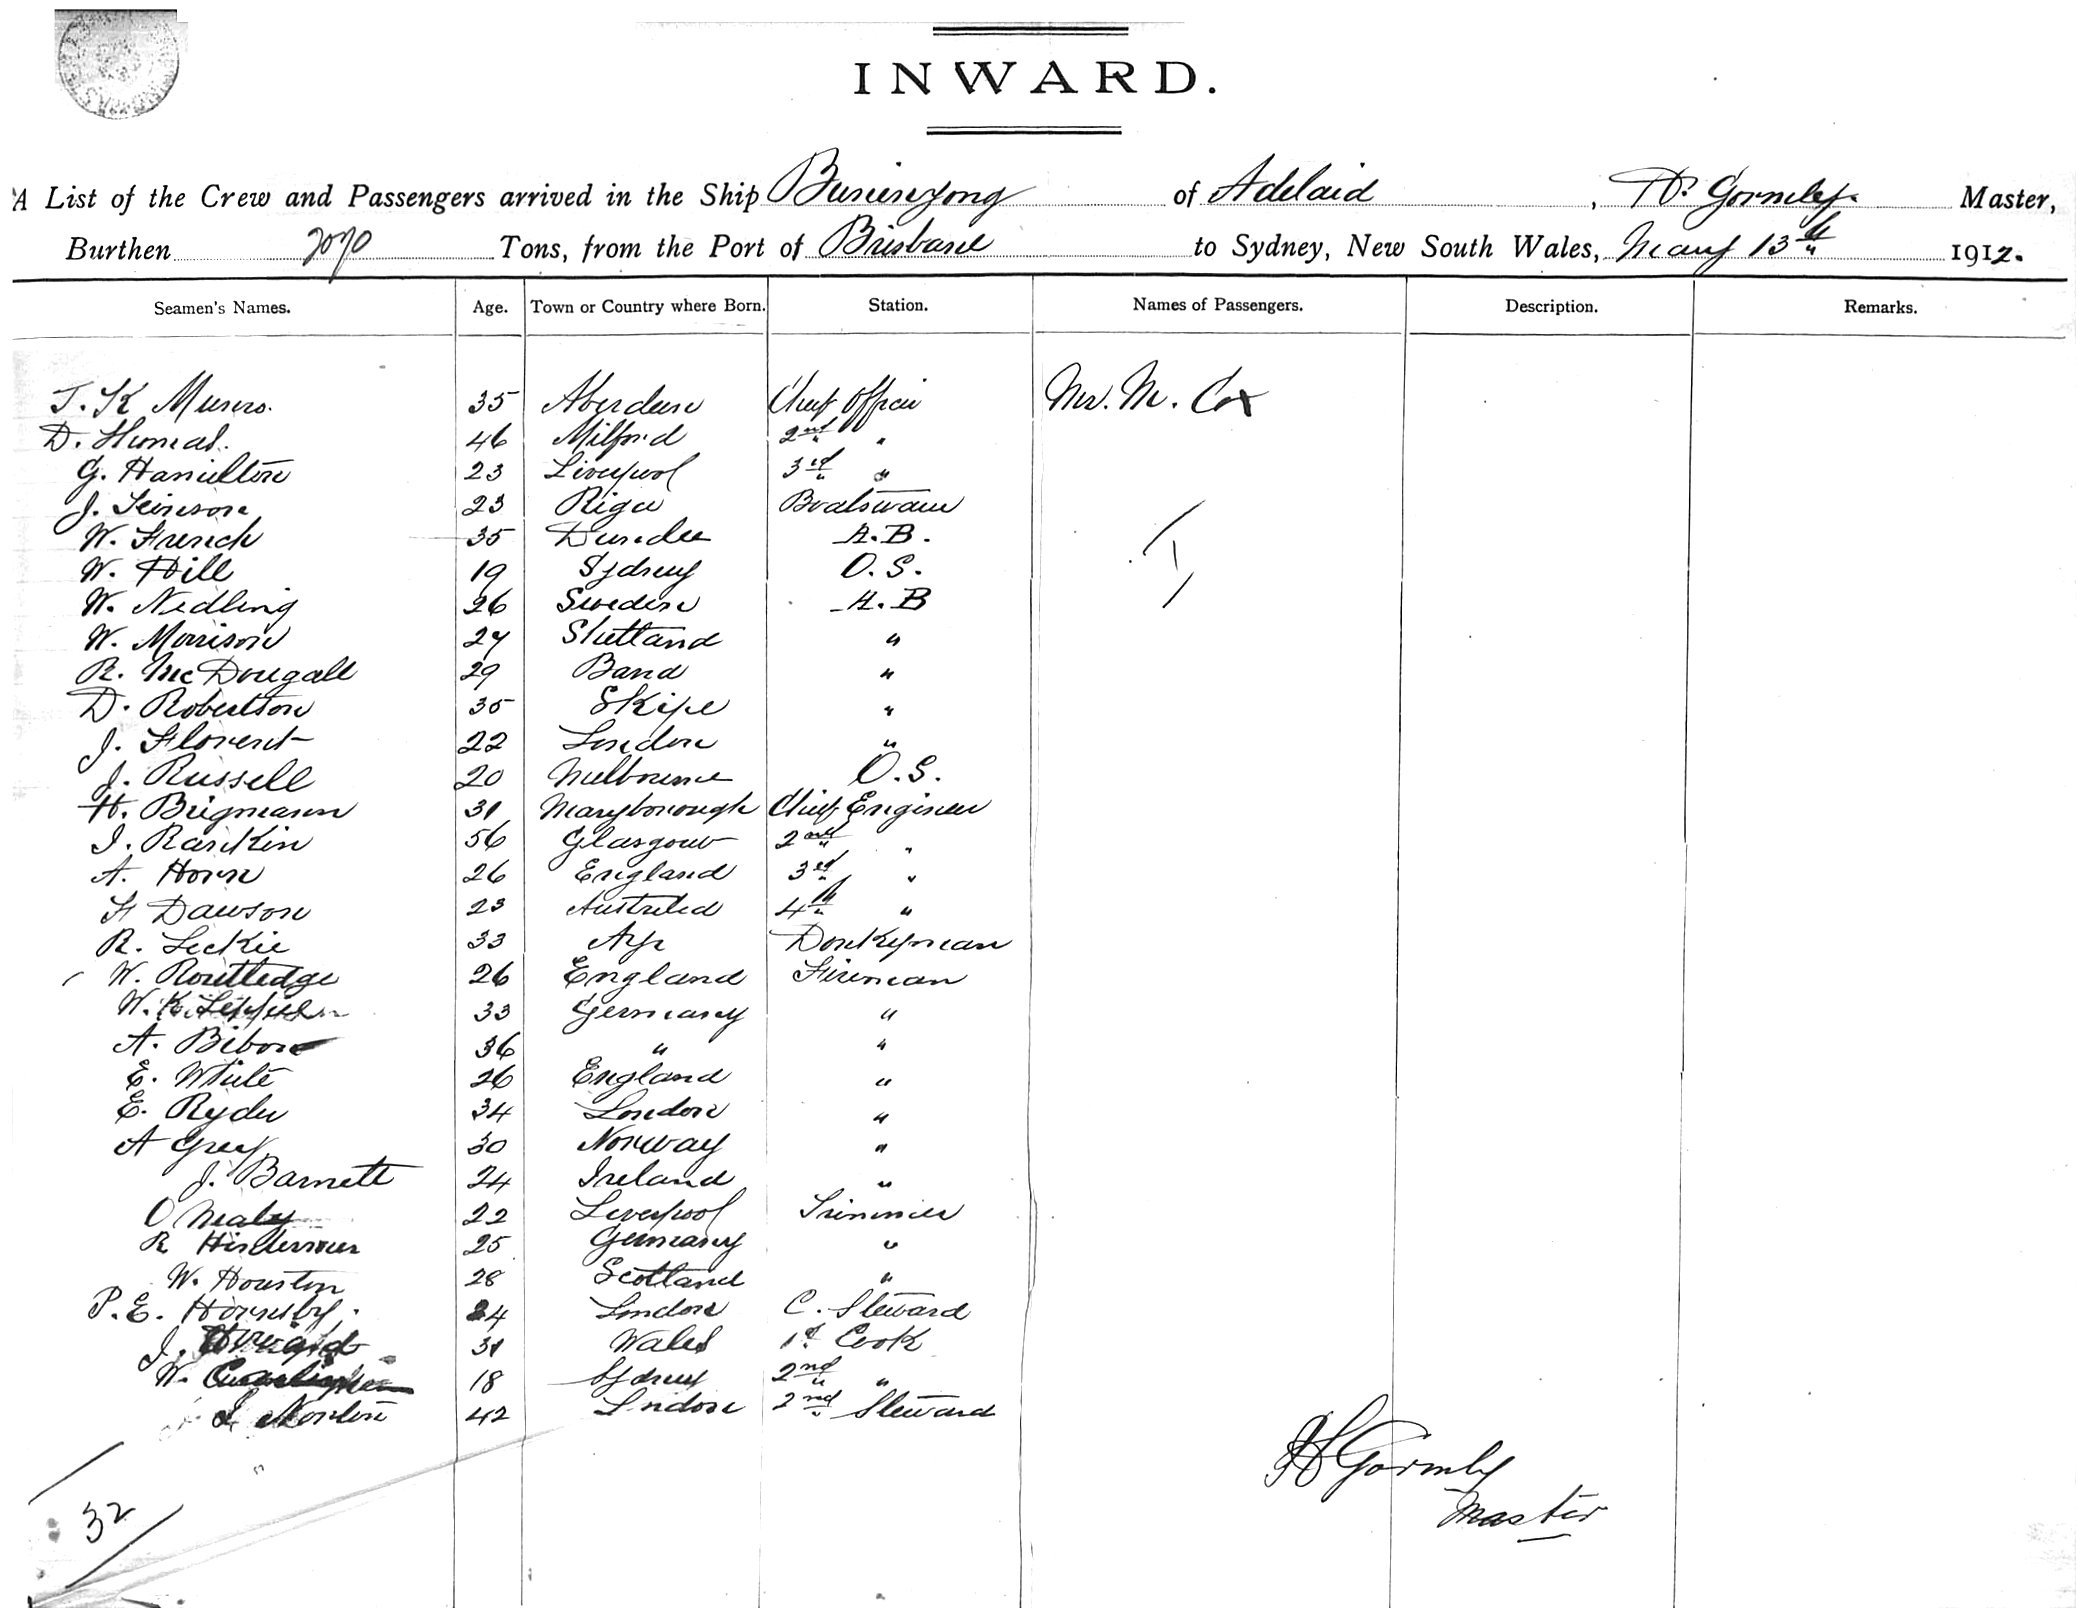 INWARD.
A List of the Crew and Passengers arrived in the Ship Buninyong of Adelaid, H. Gormley. Master,
Burthen 2070 Tons, from the Port of Brisbane to Sydney, New South Wales, May 13th 1912.
Seamen's Names. Age. Town or Country where Born. Station. Names of Passengers. Description. Remarks.
J. K Munro. 35 Aberdeen Chief Officer Mr. M. Cox
D. Thomas. 46 Milford 2nd "
G. Hamilton 23 Liverpool 3rd "
J. 23 Riga Boatswain
W. French 35 Dundee A.B.
W. Hill 19 Sydney O.S.
W. Nedling 26 Sweden A.B
W. Morrison 27 Shetland "
R. McDougall 29 "
D. Robertson 35 "
J. Florent 22 London "
J. Russell 20 Melbourne O.S.
H. Brigmann 31 Maryborough Chief Engineer
J. Rankin 56 Glasgow 2nd "
A. Horn 26 England 3rd "
F Dawson 23 4th "
R. Leckie 33 Ayr Donkeyman
W. Routledge 26 England Fireman
W. K. 33 Germany "
A. Bibow 36 " "
E. White 26 England "
E. Ryder 34 London "
A Grey 30 Norway "
J. Barnett 24 Ireland "
O Nealy 22 Liverpool Trimmer
R 25 Germany "
W. Houston 28 Scotland "
P. E. Hornsby. 24 London C. Steward
J. 31 Wales 1st Cook
W. 18 Sydney 2nd "
Norton 42 London 2nd Steward
H Gormley
Master
32